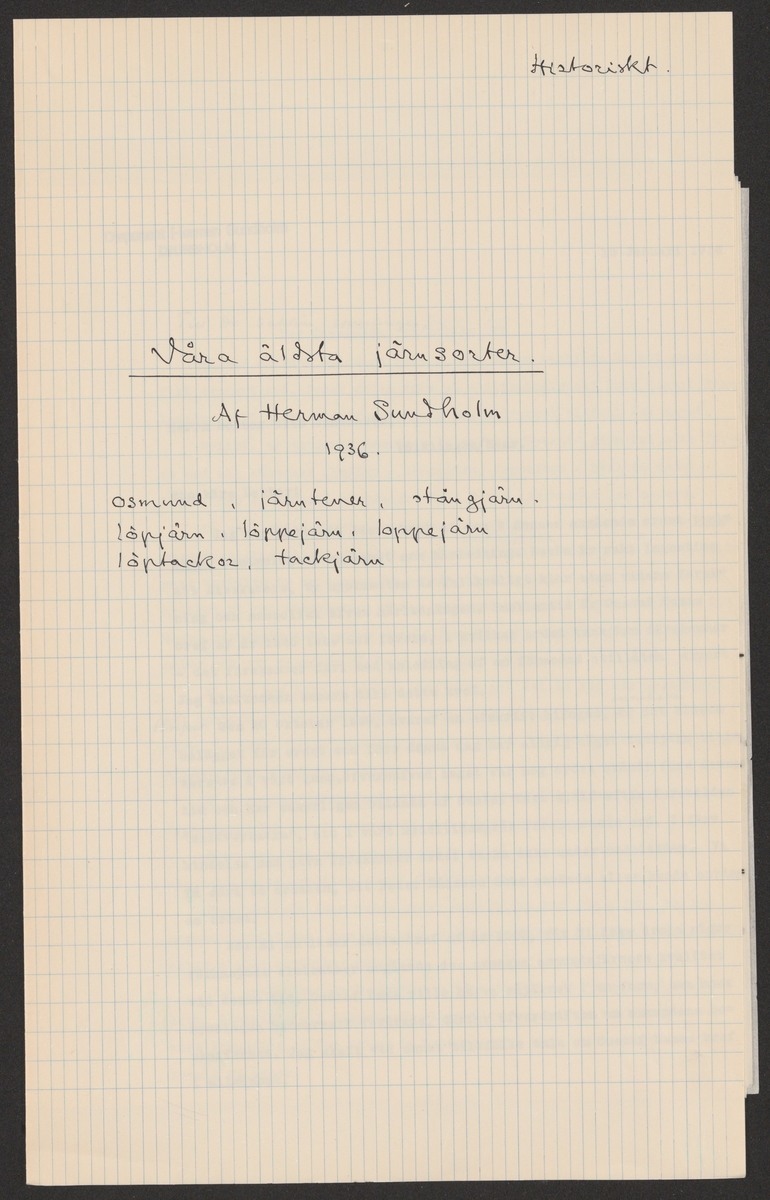 Historiskt.
Våra äldsta järnsorter.
Af Herman Sundholm
1936.
osmund, järntener, stångjärn.
löpjärn, löppejärn, loppejärn
löptackor, tackjärn